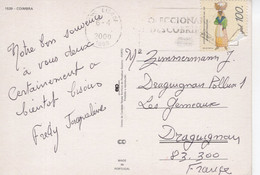 COIMBRA
Notre bon souvenir
à vous deux
Certainement à
bientôt bisous
Fredy Jacqueline
COLECCIONAR
DESCOBRIR
2000
100.
Me Zimmermann J.
Draguignan
Les Gemeaux
Draguignan
83.300
France